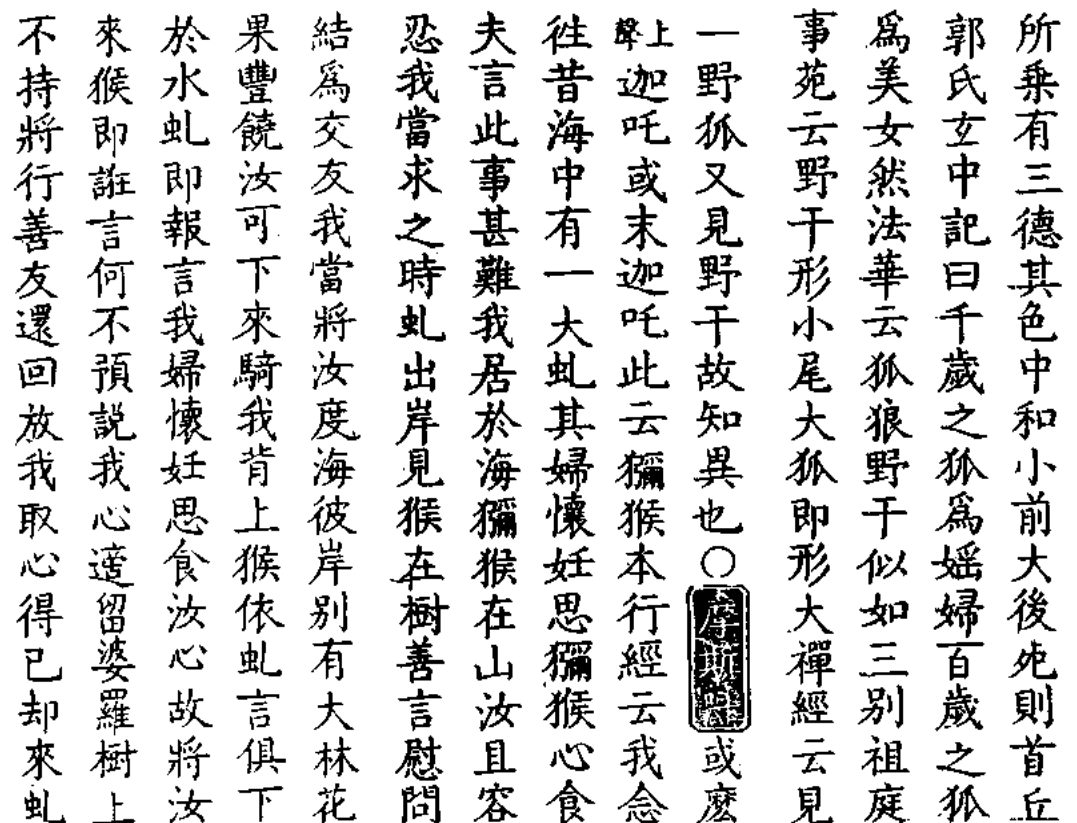 所乗有三德其色中和小前大後死則首丘
郭氏玄中記曰千歲之狐爲婬婦百歲之狐
爲美女然法華云狐狼野干似如三別祖庭
事苑云野干形小尾大狐即形大禪經云見
一野狐又見野干故知異也○摩斯吒或麽
上聲迦吒或末迦吒此云獼猴本行經云我念
徃昔海中有一大虬其婦懷妊思獼猴心食
夫言此事甚難我居於海獼猴在山汝且容
忍我當求之時虬出岸見猴在樹善言慰問
結爲交友我當將汝度海彼岸別有大林花
果豐饒汝可下來騎我背上猴依虬言俱下
於水虬即報言我婦懷妊思食汝心故將汝
來猴即誑言何不預說我心適留婆羅樹上
不持將行善友還回放我取心得已却來虬